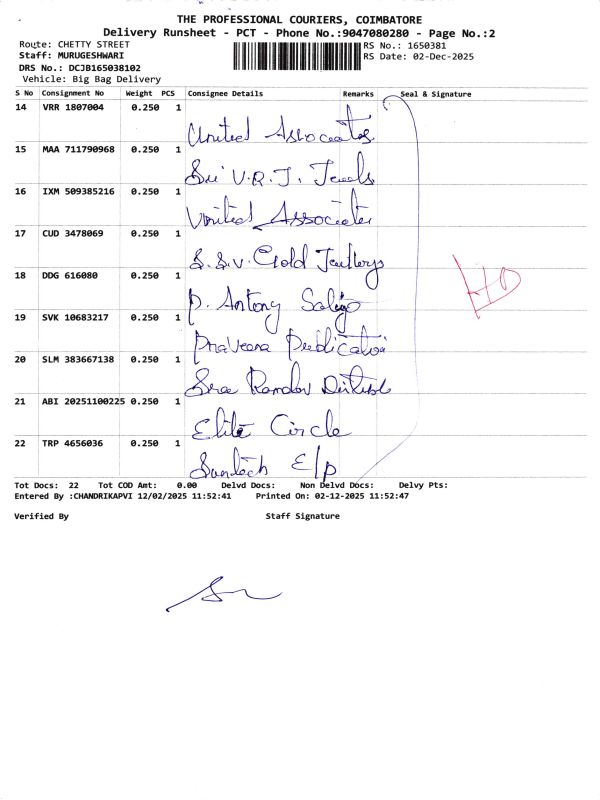 THE PROFESSIONAL COURIERS, COIMBATORE
Delivery Runsheet - PCT - Phone No.:9047080280 - Page No.:2
Route: CHETTY STREET
RS No.: 1650381
Staff: MURUGESHWARI
RS Date: 02-Dec-2025
DRS No.: DCJB165038102
Vehicle: Big Bag Delivery
S No Consignment No Weight PCS Consignee Details Remarks Seal & Signature
14 VRR 1807004 0.250 1 United Associates
15 MAA 711790968 0.250 1 Sri V.R.J. Jewels
16 IXM 509385216 0.250 1 United Associates
17 CUD 3478069 0.250 1 S.S.V. Gold
18 DDG 616080 0.250 1 P. Antony
19 SVK 10683217 0.250 1 Praveena
20 SLM 383667138 0.250 1 Sree
21 ABI 20251100225 0.250 1 Elite Circle
22 TRP 4656036 0.250 1 Suntech E/p
HO
Tot Docs: 22 Tot COD Amt: 0.00 Delvd Docs: Non Delvd Docs: Delvy Pts:
Entered By :CHANDRIKAPVI 12/02/2025 11:52:41 Printed On: 02-12-2025 11:52:47
Verified By Staff Signature